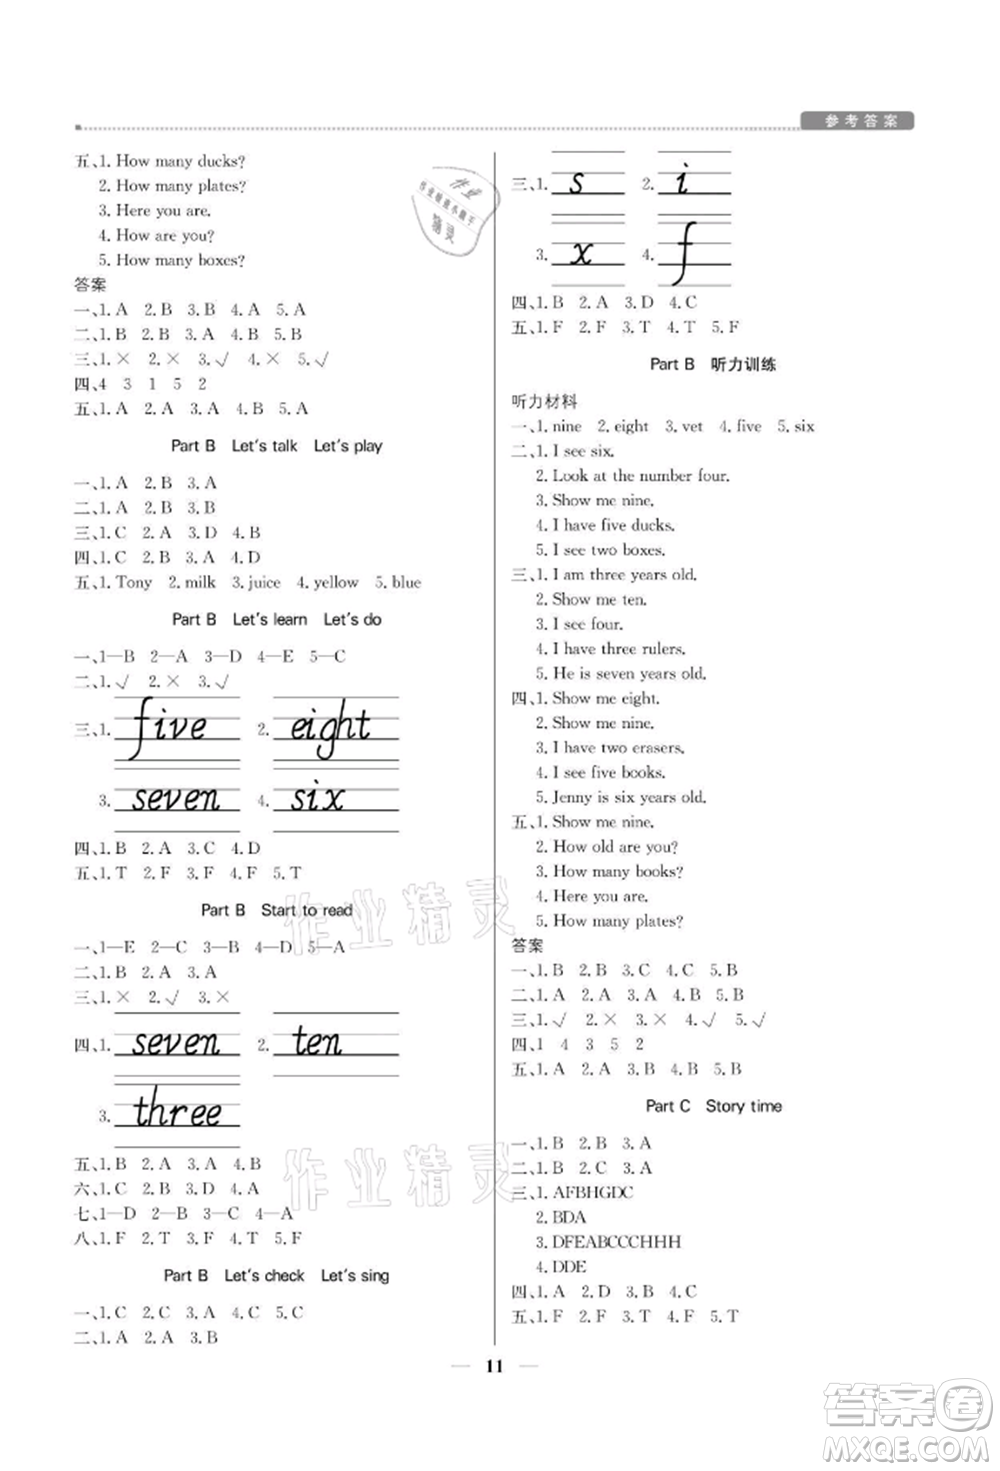 参考答案
五、1. How many ducks?
2. How many plates?
3. Here you are.
4. How are you?
5. How many boxes?
答案
一、1. A 2. B 3. B 4. A 5. A
二、1. B 2. B 3. B 4. A 5. B
三、1. × 2. × 3. √ 4. × 5. √
四、4 3 1 5 2
五、1. A 2. A 3. A 4. B 5. A
Part B Let's talk Let's play
一、1. A 2. B 3. A
二、1. A 2. B 3. B
三、1. C 2. A 3. D 4. B
四、1. C 2. B 3. A 4. D
五、1. Tony 2. milk 3. juice 4. yellow 5. blue
Part B Let's learn Let's do
一、1—B 2—A 3—D 4—E 5—C
二、1. √ 2. × 3. √
三、1. five 2. eight
3. seven 4. six
四、1. B 2. A 3. C 4. D
五、1. T 2. F 3. F 4. F 5. T
Part B Start to read
一、1—E 2—C 3—B 4—D 5—A
二、1. B 2. A 3. A
三、1. × 2. √ 3. ×
四、1. seven 2. ten
3. three
五、1. B 2. A 3. A 4. B
六、1. C 2. A 3. B 4. B
七、1—D 2—B 3—C 4—A
八、1. F 2. T 3. F 4. T 5. F
Part B Let's check Let's sing
一、1. C 2. C 3. A 4. C 5. C
二、1. A 2. A 3. B
三、1. s 2. i
3. x 4. f
四、1. B 2. A 3. D 4. C
五、1. F 2. F 3. T 4. T 5. F
Part B 听力训练
听力材料
一、1. nine 2. eight 3. vet 4. five 5. six
二、1. I see six.
2. Look at the number four.
3. Show me nine.
4. I have five ducks.
5. I see two boxes.
三、1. I am three years old.
2. Show me ten.
3. I see four.
4. I have three rulers.
5. He is seven years old.
四、1. Show me eight.
2. Show me nine.
3. I have two erasers.
4. I see five books.
5. Jenny is six years old.
五、1. Show me nine.
2. How old are you?
3. How many books?
4. Here you are.
5. How many plates?
答案
一、1. B 2. B 3. C 4. C 5. B
二、1. A 2. A 3. B 4. B 5. B
三、1. √ 2. × 3. × 4. √ 5. √
四、1 4 3 5 2
五、1. A 2. A 3. B 4. B 5. B
Part C Story time
一、1. B 2. B 3. A
二、1. C 2. B 3. A
三、1. AFBHGDC
2. BDA
3. DFEABCCCHHH
4. DDE
四、1. A 2. D 3. B 4. C
五、1. F 2. F 3. T 4. F 5. T
— 11 —
作业精灵
作业精灵
答案圈
MXQE.COM